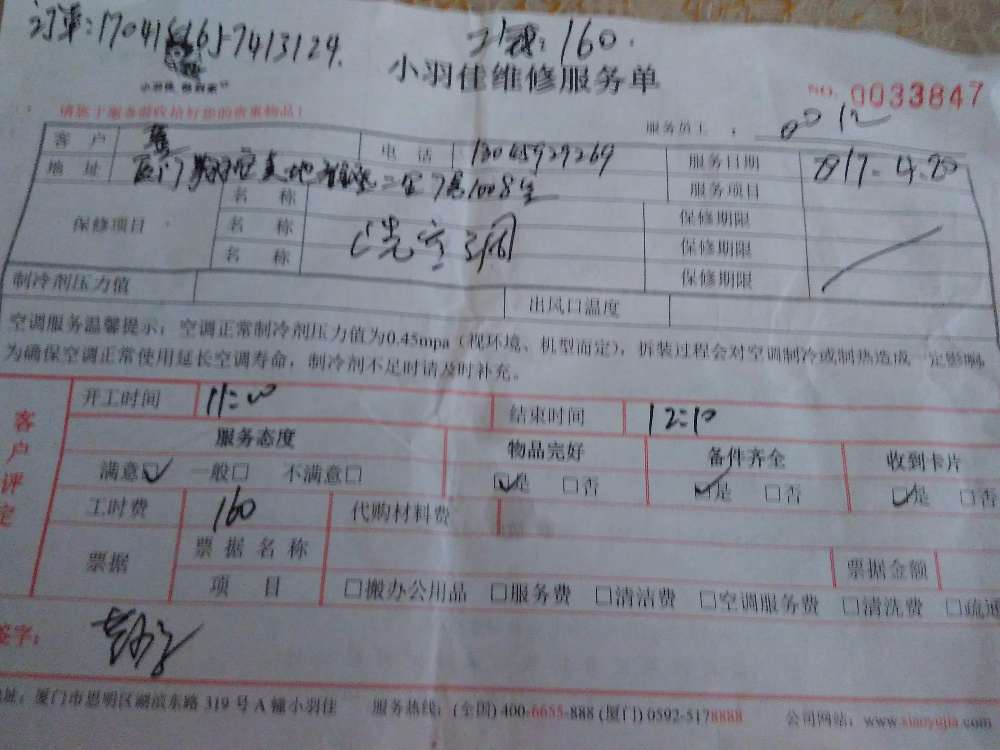 订单:1704161657413129.
工钱:160.
小羽佳维修服务单
NO. 0033847
请您于服务前收拾好您的贵重物品!
服务员工: 0012
客户 电话 13045929269 服务日期 2017.4.20
地址 服务项目
保修项目 名称 洗空调 保修期限
名称 保修期限
名称 保修期限
制冷剂压力值 出风口温度
空调服务温馨提示:空调正常制冷剂压力值为0.45mpa(视环境、机型而定),拆装过程会对空调制冷或制热造成一定影响
为确保空调正常使用延长空调寿命,制冷剂不足时请及时补充。
客户评定
开工时间 11:00 结束时间 12:10
服务态度 物品完好 备件齐全 收到卡片
满意☑ 一般□ 不满意□ ☑是 □否 ☑是 □否 ☑是 □否
工时费 160 代购材料费
票据 票据名称 票据金额
项目 □搬办公用品 □服务费 □清洁费 □空调服务费 □清洗费 □疏通
签字:
地址:厦门市思明区湖滨东路319号A幢小羽佳 服务热线:(全国)400-6655-888(厦门)0592-5178888 公司网站:www.xiaoyujia.com